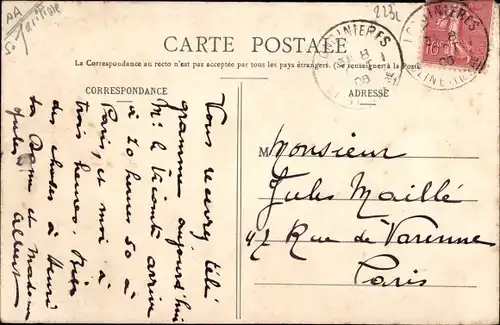 AA
Maritime
CARTE POSTALE
La Correspondance au recto n'est pas acceptée par tous les pays étrangers. (Se renseigner à la Poste)
CORRESPONDANCE
ADRESSE
Vous recevrez télé
gramme aujourd'hui
Mr le Vicomte arrive
à 20 heures 50 à
Paris, et moi à
trois heures. Bien
des choses à Henri
La Dame et Madame
Jules
Albert
Monsieur
Jules Maillé
47 Rue de Varenne
Paris